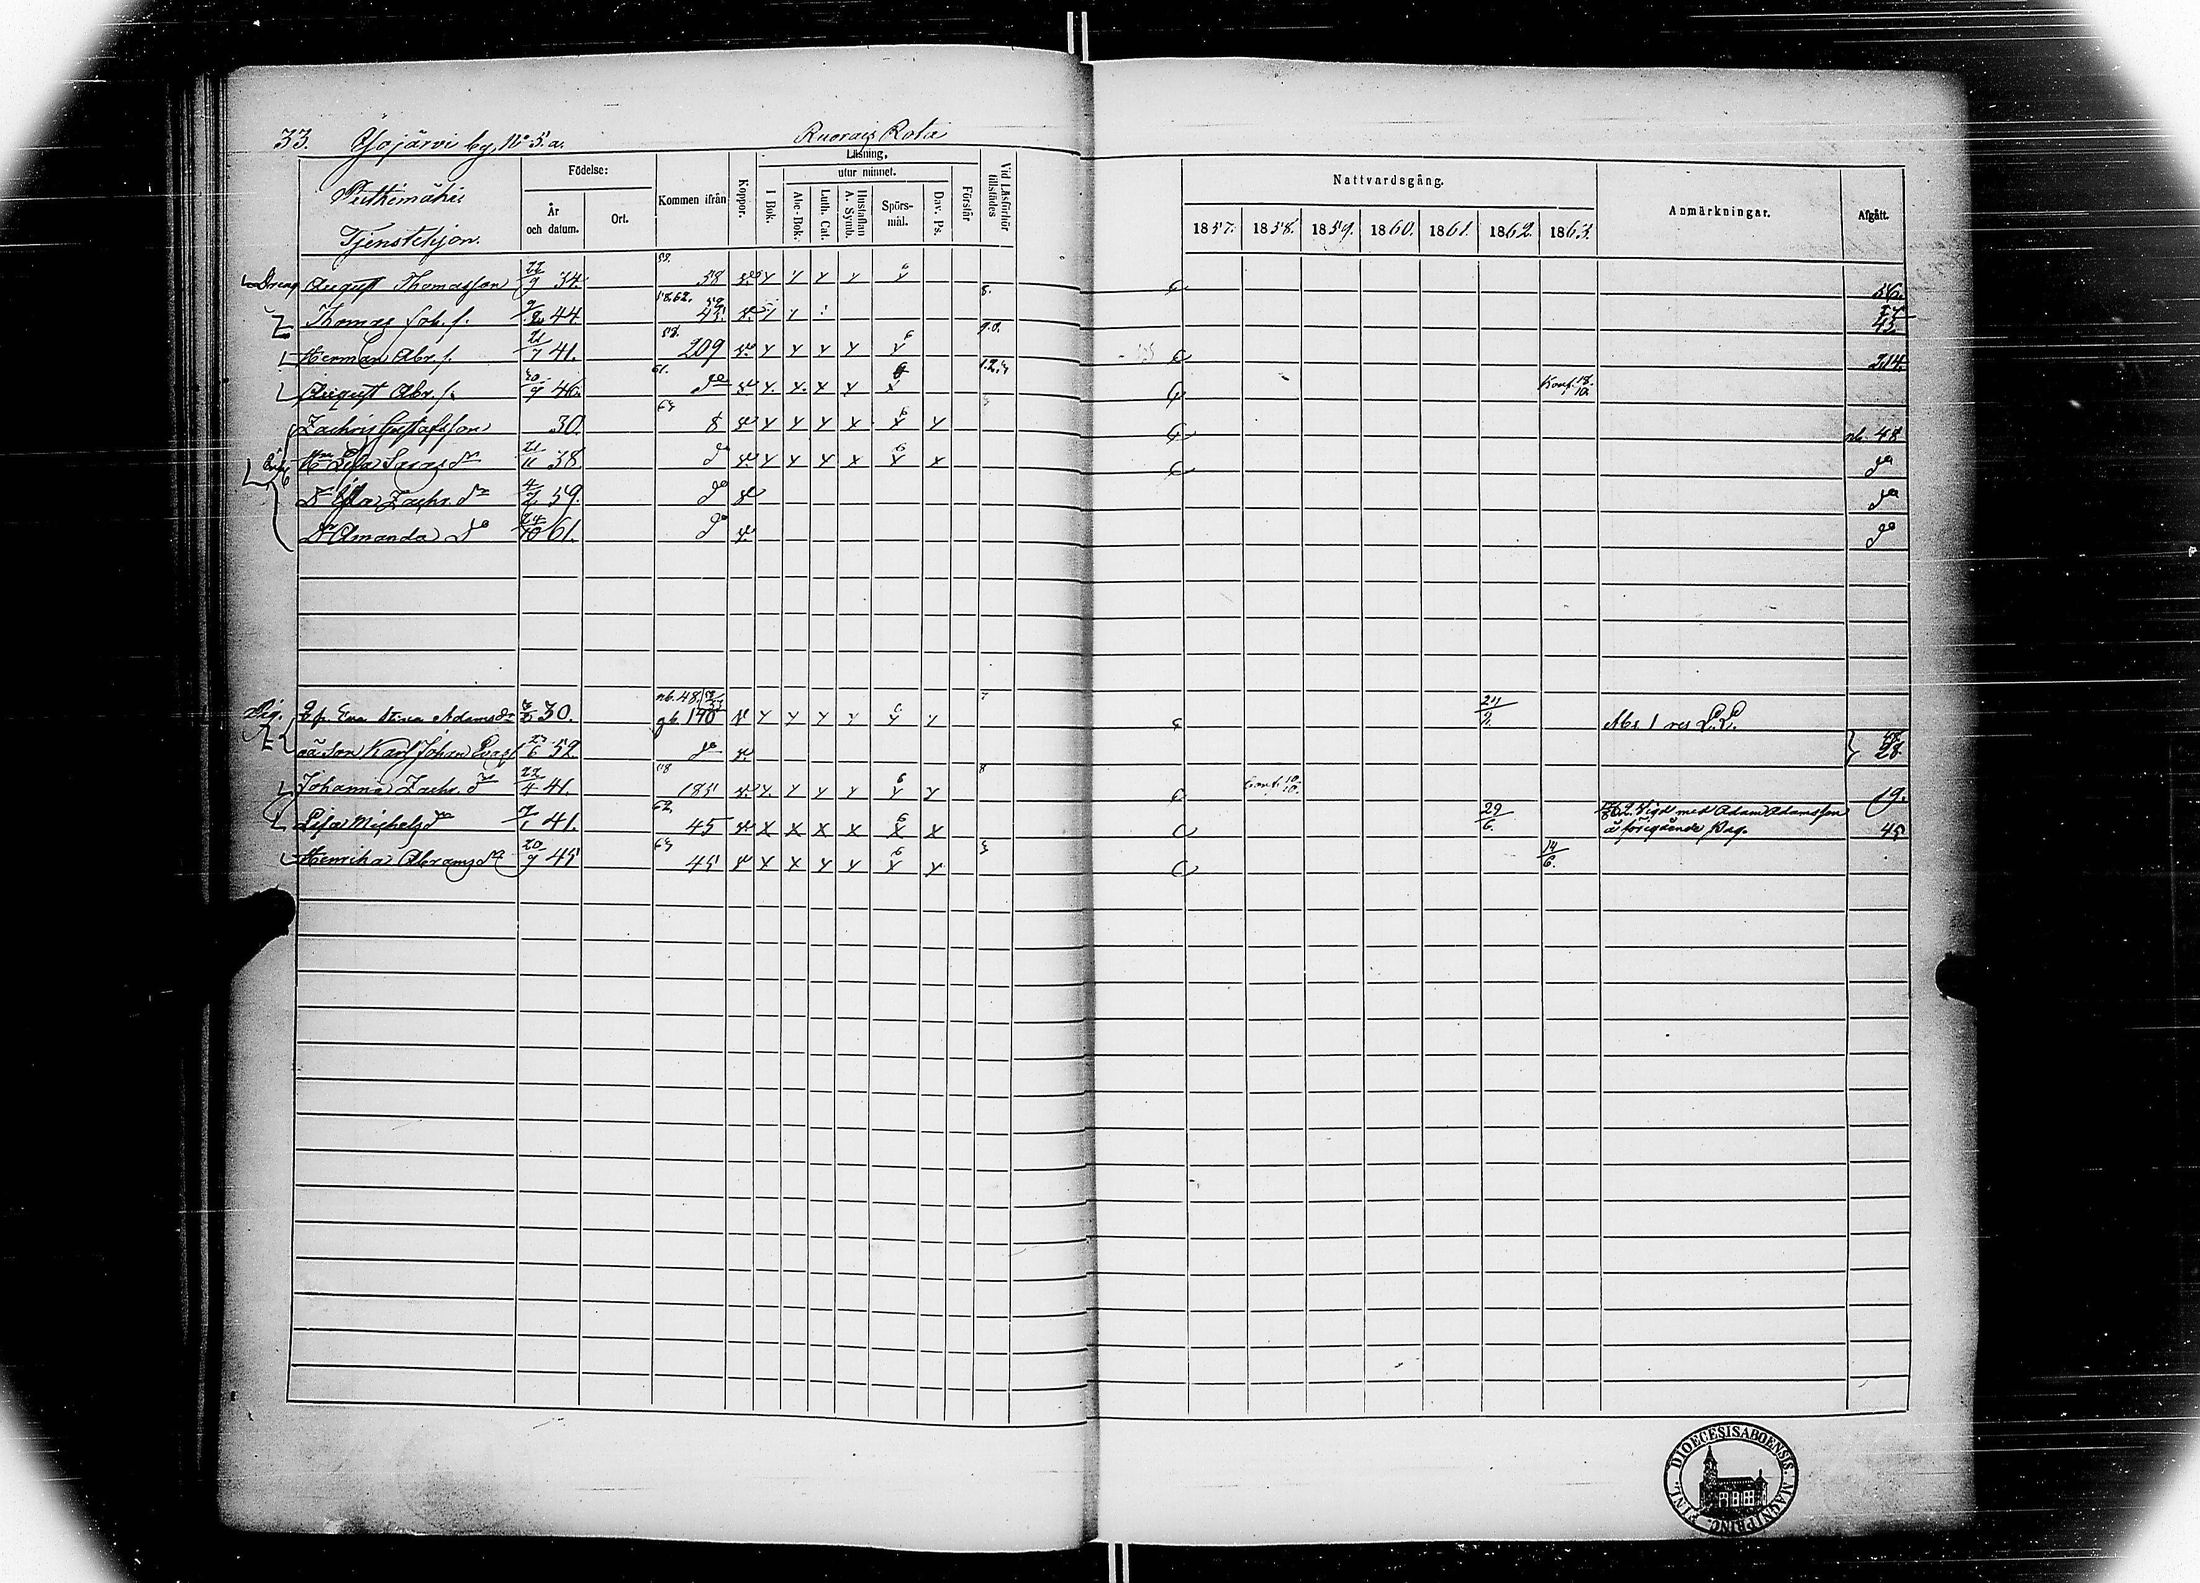 33. Ylojärvi by, No 5. a. Ruorais Rota
Pertkimäki
Tjenstehjon.
Födelse:
År och datum.
Ort.
Kommen ifrån
Koppor.
Läsning,
utur minnet.
I Bok.
Abc-Bok.
Luth. Cat.
Hustaflan A. Symb.
Spörsmål.
Dav. Ps.
Förstår
Vid Läsförhör tillstädes
Nattvardsgång.
1857. 1858. 1859. 1860. 1861. 1862. 1863.
Anmärkningar.
Afgått.
Dreng August Thomasson 22/9 34. 58 58 v. 8. 56.
Thomas Joh. s. 44. 1862. 45. v. 45.
Herman Abr. s. 21/7 41. 58. 209 v. 214.
August Abr. s. 20/9 46. 61. do v. Konf. 18/10.
Zachris Gustafsson 30. 63 8 v. nb. 48
Hu Lisa Saras dr 21/11 38. do v. do
Dr Lisa Zachr. dr 4/2 59. do v do
Dr Amanda do 24/10 61. do v. do
Pig. Qp. Eva Stina Adams dr 30. nb. 48. gb. 140 v 7 24/9. Abs. 1 res L.L.
oä son Karl Johan Evas s 52. do v. 28.
Johanna Zachr. dr 22/4 41. 58 185 v. 8 Conf. 10/10. 19.
Lisa Michels dr 7/1 41. 62. 45 v 29/6. Vigd med Adam Adamsson
å föregående pag. 45
Henrika Abrams dr 20/9 45 63 45 v 3 14/6.
DIOECESIS ABOENSIS. MAGNI PRINC. FINL.